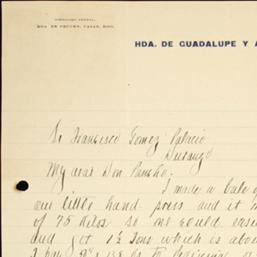 DIRECCION POSTAL,
HDA. DE
HDA. DE GUADALUPE Y A
Sr Francisco Gomez Palacio
Durango
My dear Don Pancho:
I made a bale o
our little hand press and it
of 75 kilos so one could easi
and get 1½ tons which is abo